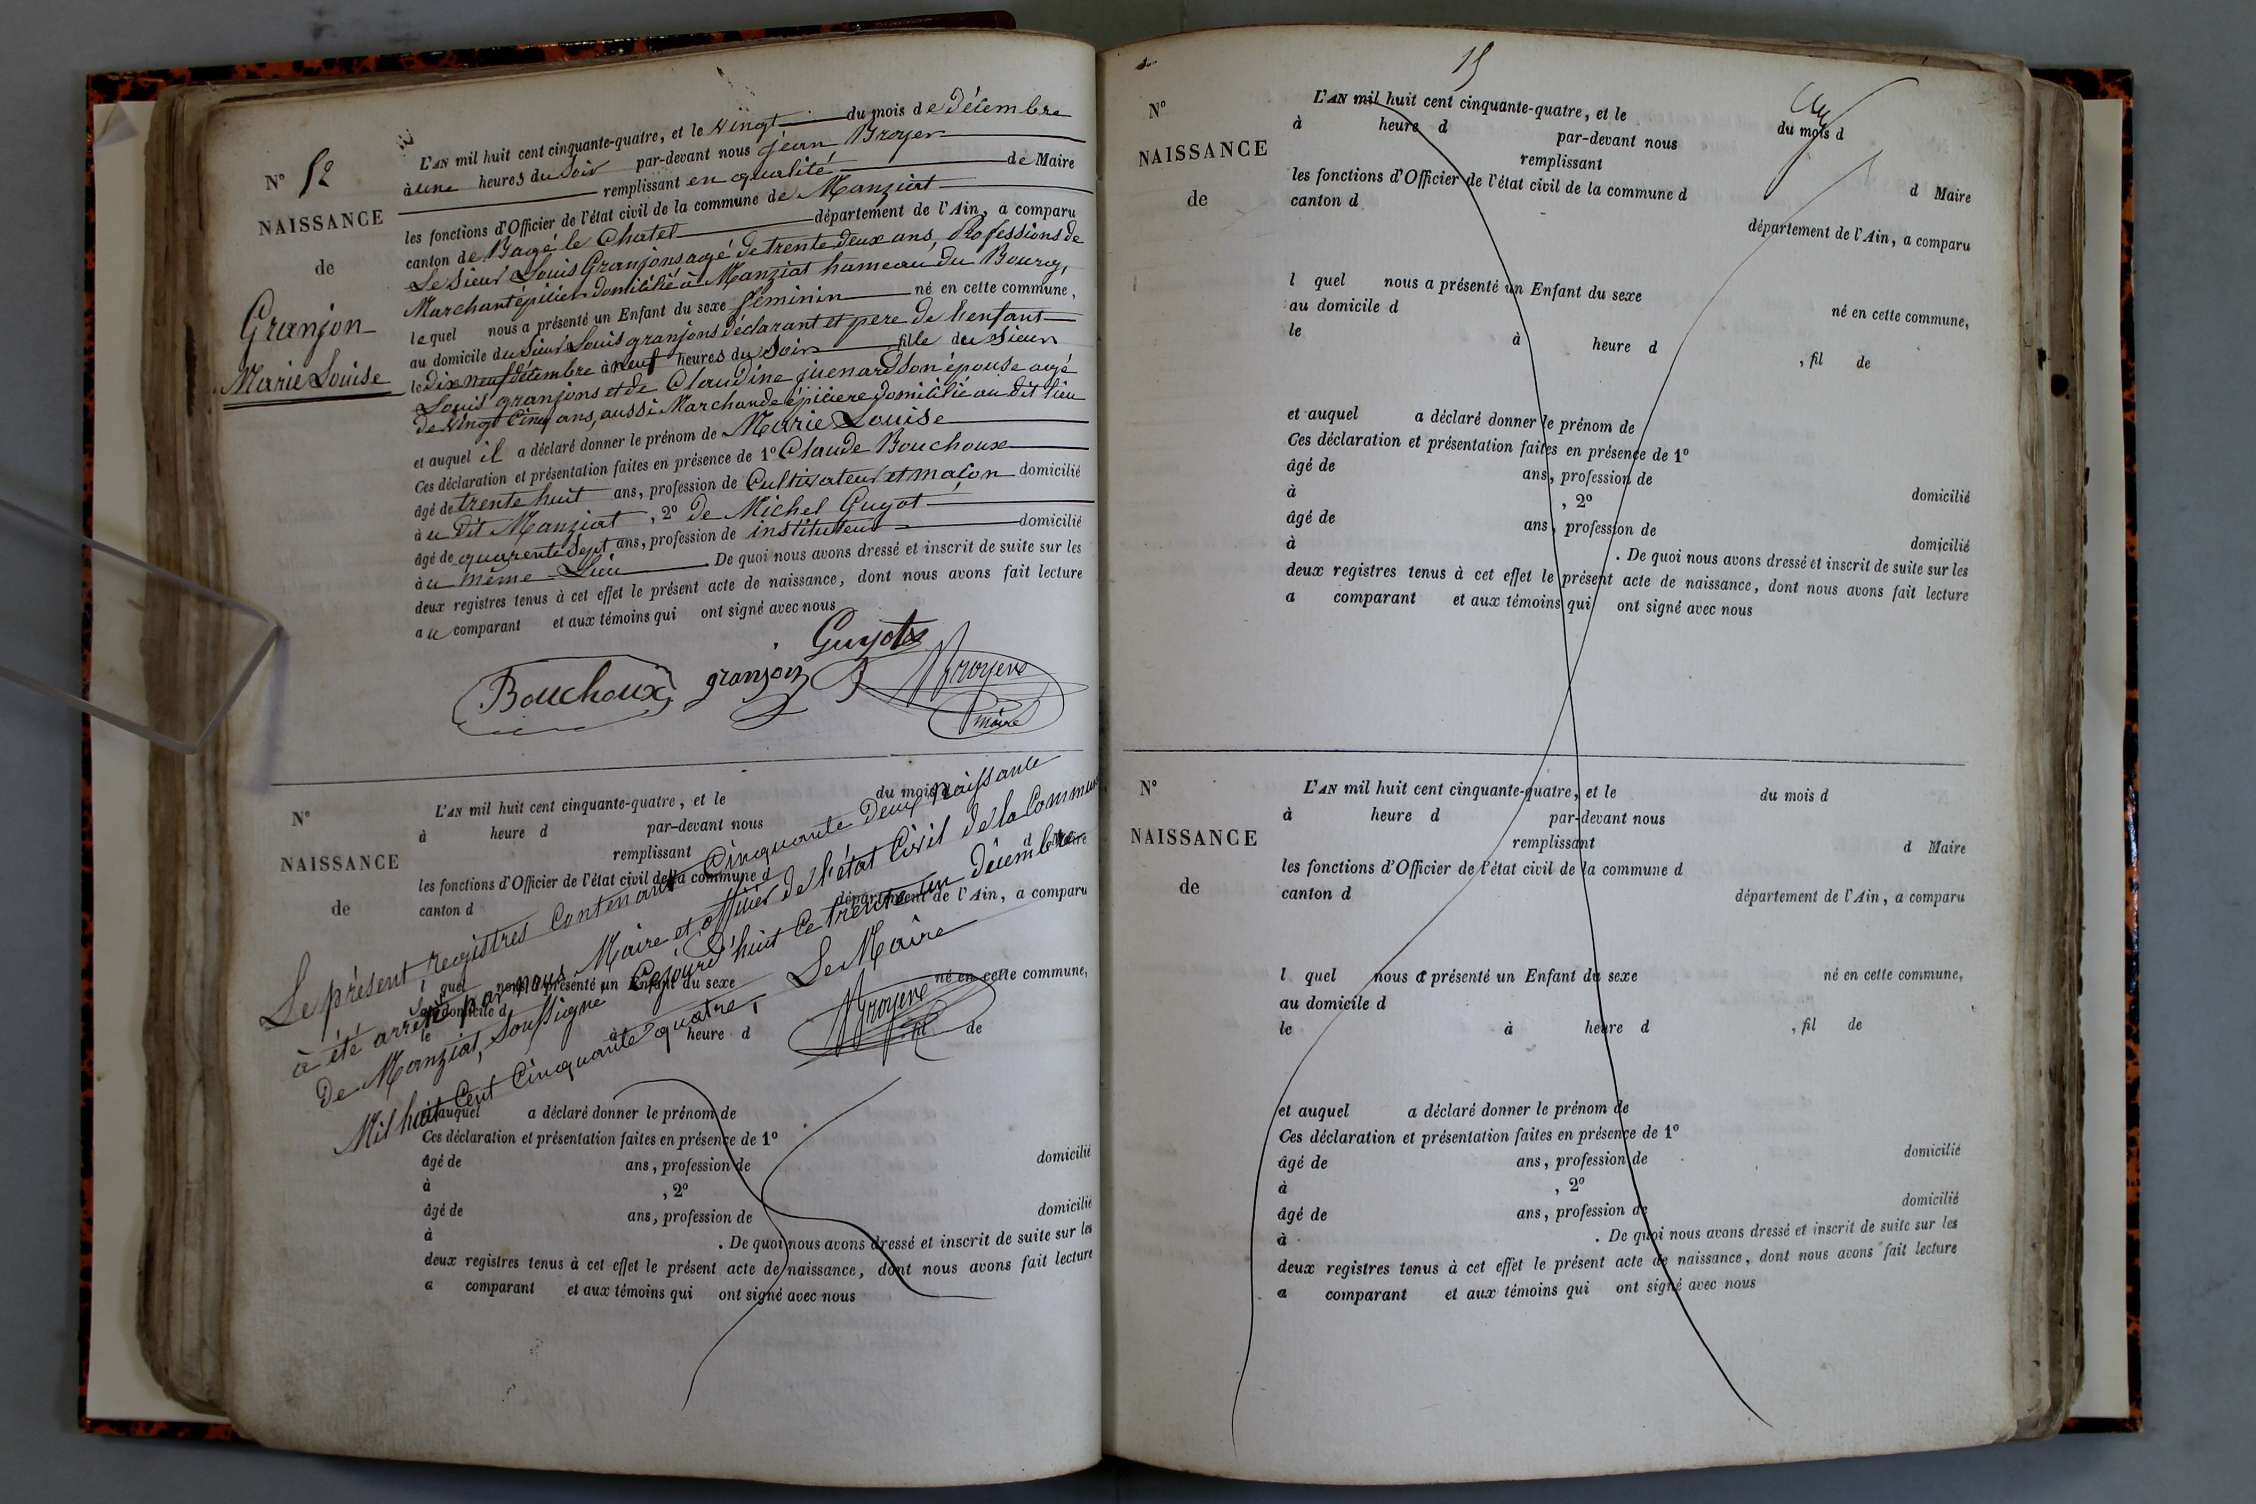 N° 52
NAISSANCE
de
Granjon
Marie Louise
L'AN mil huit cent cinquante-quatre, et le vingt du mois de décembre
à une heures du soir par-devant nous jean Broyer
remplissant en qualité de Maire
les fonctions d'Officier de l'état civil de la commune de Manziat
canton de Bagé le Chatel département de l'Ain, a comparu
Le sieur Louis Granjons agé de trente deux ans, Professions de
Marchant épicier domicilié à Manziat hameau du Bourg,
lequel nous a présenté un Enfant du sexe féminin né en cette commune,
au domicile du sieur Louis granjons déclarant et pere de l'enfant
le dix neuf décembre à neuf heures du soir fille du sieur
Louis granjons et de Claudine juenard son épouse agé
de vingt cinq ans, aussi Marchande épiciere domicilié au dit lieu
et auquel il a déclaré donner le prénom de Marie Louise
Ces déclaration et présentation faites en présence de 1° Claude Bouchoux
âgé de trente huit ans, profession de Cultivateur et maçon domicilié
à u dit Manziat, 2° de Michel Guyot
âgé de quarente sept ans, profession de instituteur domicilié
à u même Lieu. De quoi nous avons dressé et inscrit de suite sur les
deux registres tenus à cet effet le présent acte de naissance, dont nous avons fait lecture
au comparant et aux témoins qui ont signé avec nous
Guyot
Bouchoux granjon Broyer
maire
N°
NAISSANCE
de
L'AN mil huit cent cinquante-quatre, et le du mois d
à heure d par-devant nous
remplissant d Maire
les fonctions d'Officier de l'état civil de la commune d
canton d département de l'Ain, a comparu
l quel nous a présenté un Enfant du sexe né en cette commune,
au domicile d
le à heure d fil de
et auquel a déclaré donner le prénom de
Ces déclaration et présentation faites en présence de 1°
âgé de ans, profession de domicilié
à , 2°
âgé de ans, profession de domicilié
à . De quoi nous avons dressé et inscrit de suite sur les
deux registres tenus à cet effet le présent acte de naissance, dont nous avons fait lecture
a comparant et aux témoins qui ont signé avec nous
Le présent registres Contenant Cinquante Deux Naissance
à été arrêté par nous Maire et officier de l'état Civil de la Commune
De Manziat, Soussigné Cejourd'huit Ce trente un décembre
Mil huit Cent Cinquante quatre, Le Maire
Broyer
15
N°
NAISSANCE
de
L'AN mil huit cent cinquante-quatre, et le du mois d
à heure d par-devant nous
remplissant d Maire
les fonctions d'Officier de l'état civil de la commune d
canton d département de l'Ain, a comparu
l quel nous a présenté un Enfant du sexe né en cette commune,
au domicile d
le à heure d , fil de
et auquel a déclaré donner le prénom de
Ces déclaration et présentation faites en présence de 1°
âgé de ans, profession de domicilié
à , 2°
âgé de ans, profession de domicilié
à . De quoi nous avons dressé et inscrit de suite sur les
deux registres tenus à cet effet le présent acte de naissance, dont nous avons fait lecture
a comparant et aux témoins qui ont signé avec nous
N°
NAISSANCE
de
L'AN mil huit cent cinquante-quatre, et le du mois d
à heure d par-devant nous
remplissant d Maire
les fonctions d'Officier de l'état civil de la commune d
canton d département de l'Ain, a comparu
l quel nous a présenté un Enfant du sexe né en cette commune,
au domicile d
le à heure d , fil de
et auquel a déclaré donner le prénom de
Ces déclaration et présentation faites en présence de 1°
âgé de ans, profession de domicilié
à , 2°
âgé de ans, profession de domicilié
à . De quoi nous avons dressé et inscrit de suite sur les
deux registres tenus à cet effet le présent acte de naissance, dont nous avons fait lecture
a comparant et aux témoins qui ont signé avec nous